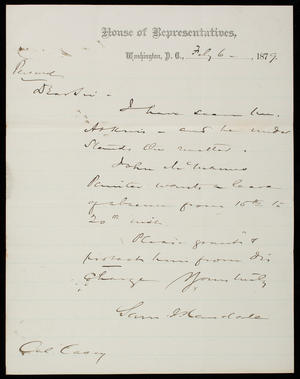 House of Representatives,
Washington, D. C., Feby 6 1879.
Personal
Dear Sir -
I have seen Mr.
Atkins - and he under
stands the matter.
John McManus
Painter wants a leave
of absence from 15th to
20th inst.
Please grant &
protect him from dis
charge Yours truly
Sam J Randall
Col Casey